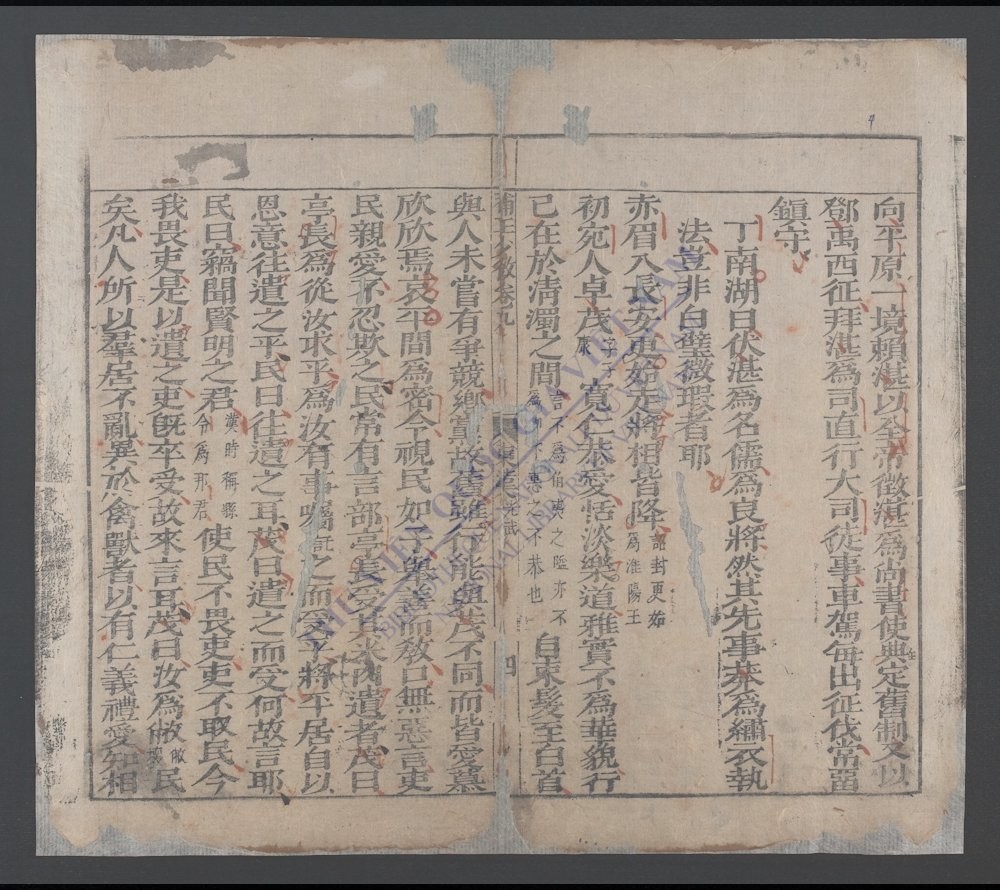 向平原一境賴湛以全帝徵湛爲尚書使典定舊制又以
鄧禹西征拜湛爲司直行大司徒事車駕每出征伐常畱
鎮守
丁南湖曰伏湛爲名儒爲良將然其先事莽爲繡衣執
法豈非白璧微瑕者耶
赤眉入長安更始走將相皆降詔封更始爲淮陽王
初宛人卓茂字子康寬仁恭愛恬淡樂道雅實不爲華貌行
己在於淸濁之間言不爲伯夷之隘亦不爲柳下惠之不恭也自束髮至白首
卷九
四
與人未嘗有爭競鄉黨故舊雖行能與茂不同而皆愛慕
欣欣焉哀平間爲密令視民如子舉善而敎口無惡言吏
民親愛不忍欺之民常有言部亭長受其米肉遺者茂曰
亭長爲從汝求乎爲汝有事囑託之而受乎將平居自以
恩意往遺之乎民曰往遺之耳茂曰遺之而受何故言耶
民曰竊聞賢明之君漢時稱縣令爲那君使民不畏吏吏不取民今
我畏吏是以遺之吏旣卒受故來言耳茂曰汝爲敝民
矣凡人所以羣居不亂異於禽獸者以有仁義禮愛知相
THƯ VIỆN QUỐC GIA VIỆT NAM
NATIONAL LIBRARY OF VIETNAM